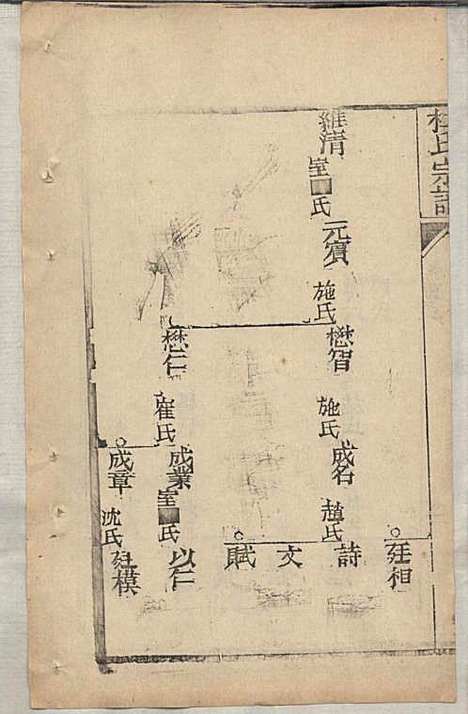 杜氏宗譜
維清
室■氏
元賓
施氏
懋智
施氏
成名
趙氏
廷相
詩
文
賦
懋仁
崔氏
成業
室■氏
以仁
成章
沈氏
廷模